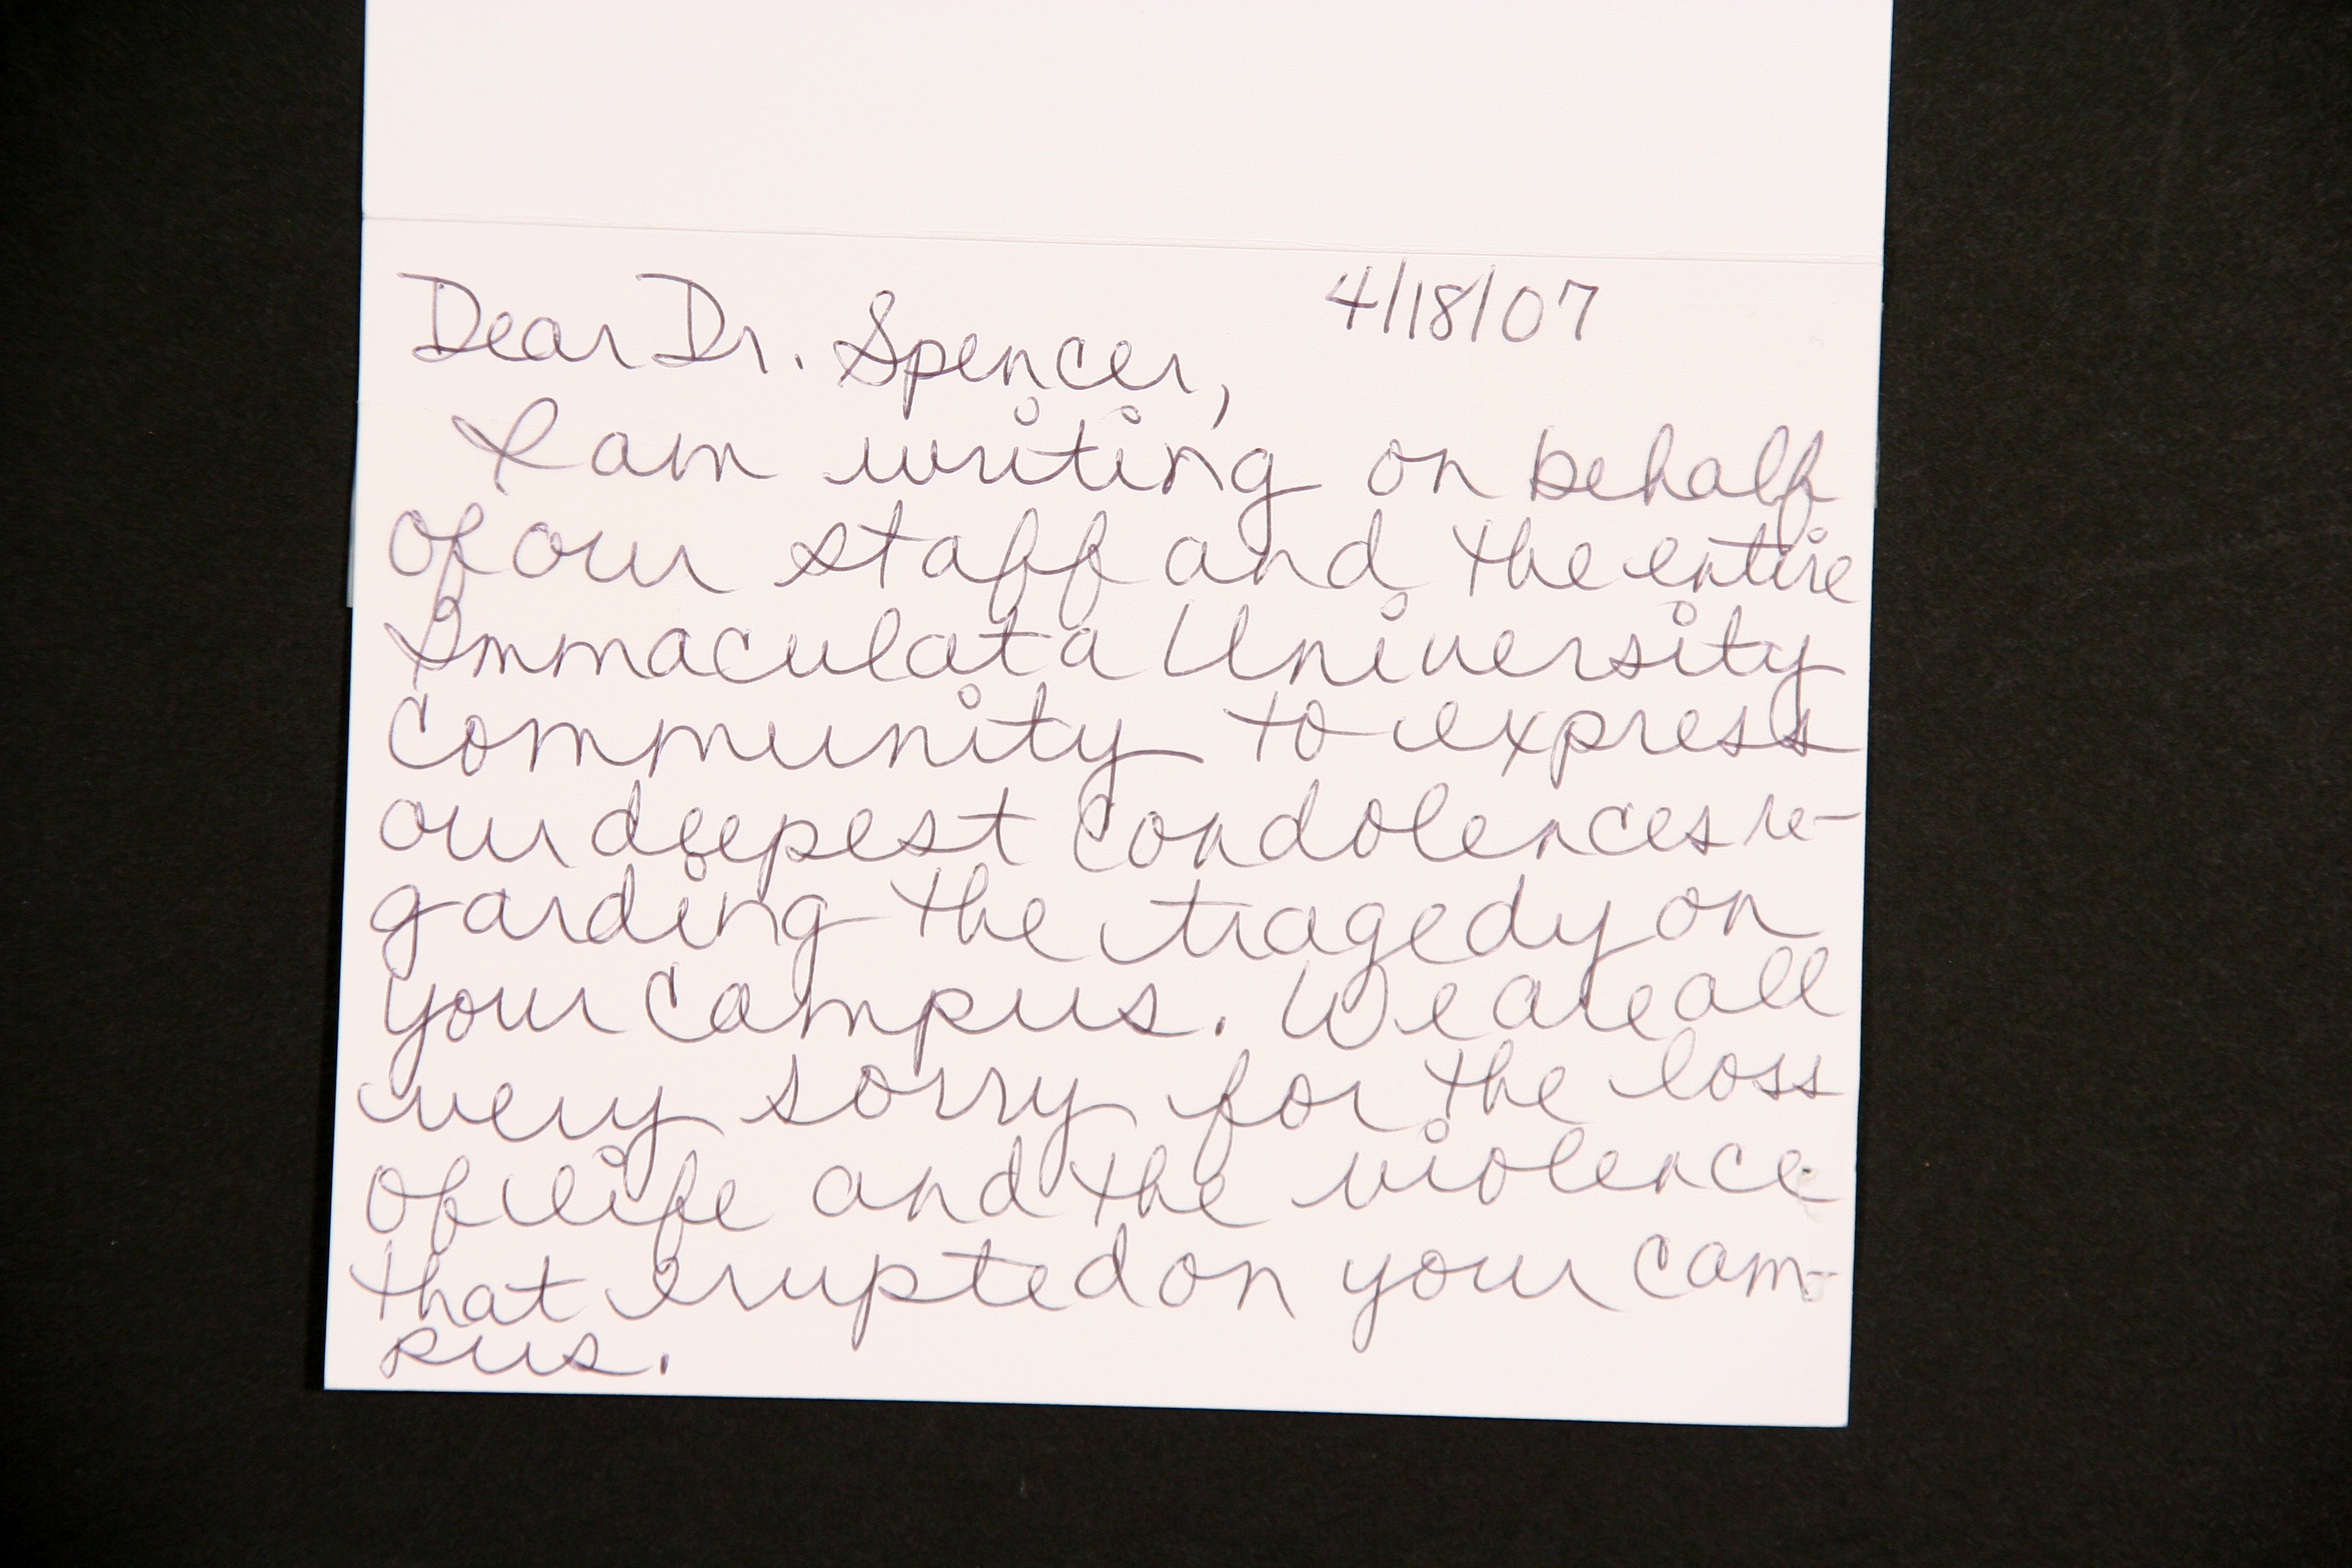 Dear Dr. Spencer, 4/18/07
I am writing on behalf
of our staff and the entire
Immaculata University
Community to express
our deepest condolences re-
garding the tragedy on
your campus. We are all
very sorry for the loss
of life and the violence
that erupted on your cam-
pus.